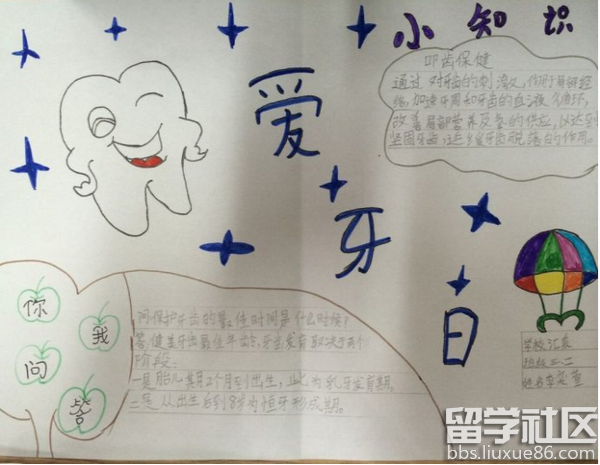 小知识
叩齿保健
通过对牙齿的刺激，作用于局部经
络，加速牙周和牙齿的血液循环，
改善局部营养及氧的供应，以达到
坚固牙齿，减少或牙齿脱落的作用。
爱
牙
日
你
我
问
答
问保护牙齿的最佳时间是什么时候?
答健美牙齿最佳年龄，牙齿发育取决于两个
阶段:
一是胎儿期2个月到出生，此为乳牙发育期。
二是从出生后到8岁为恒牙形成期。
学校
班级 三二
姓名 李
留学社区
bbs.liuxue86.com